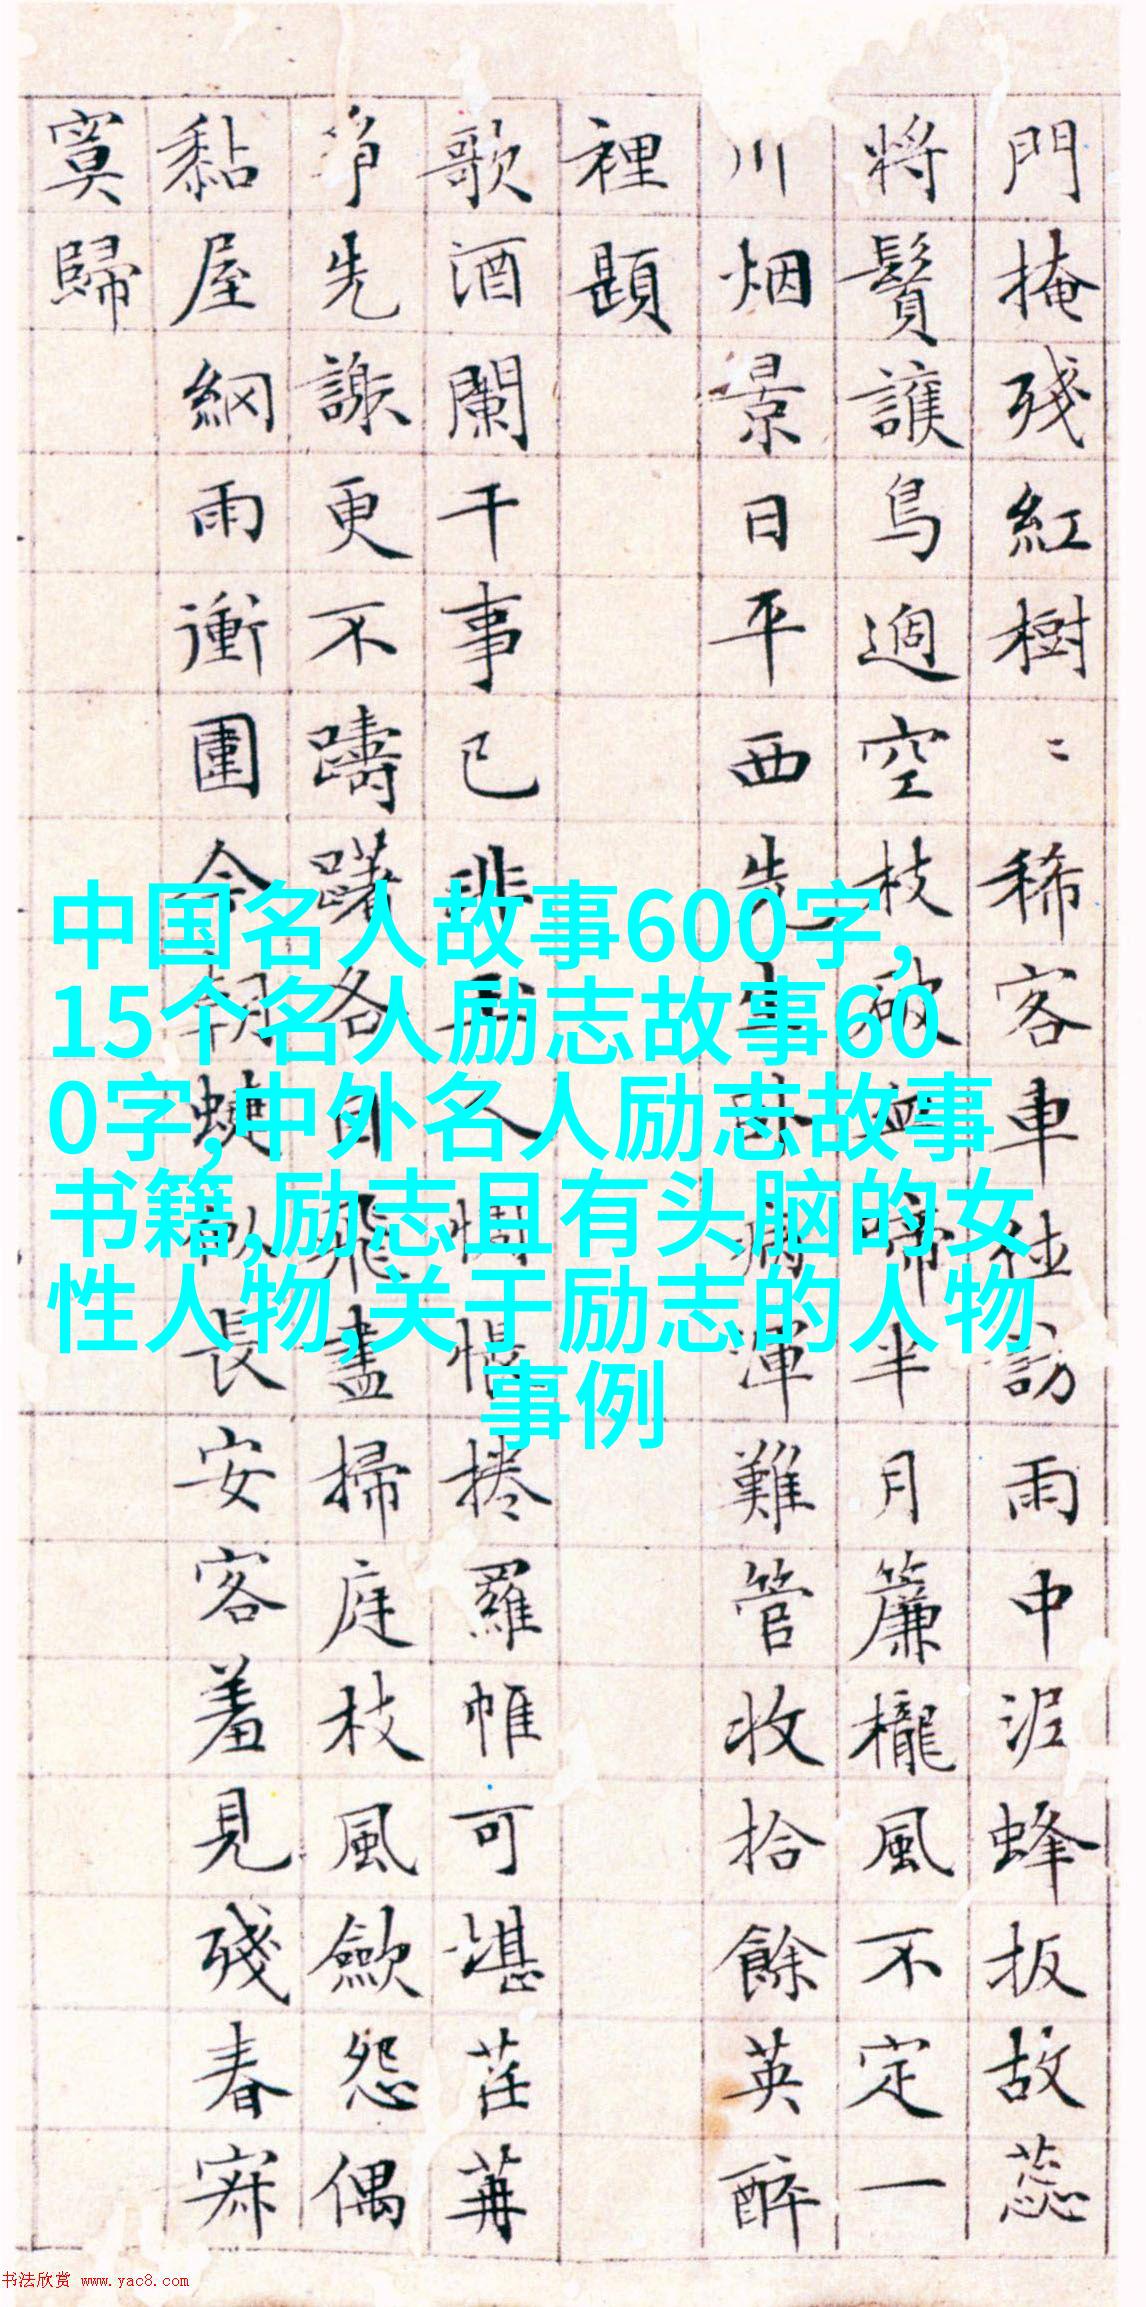 門掩殘紅樹〻稀客車社訪雨中泥蜂扳故蕊
將鬚護鳥過空枝破血啼半月簾櫳風不定一
川烟景日平西先生卧病渾難管收拾餘英醉
裡題
歌酒闌干事已非
人惆悵捲羅帷可堪荏苒
爭先謝更不躊躇各自飛盡掃庭枝風歛怨偶
黏屋網雨衝圍今朝蜨
長安客羞見殘春寂
寞歸
中国名人故事600字,
15个名人励志故事60
0字,中外名人励志故事
书籍,励志且有头脑的女
性人物,关于励志的人物
事例
书法欣赏 www.yac8.com